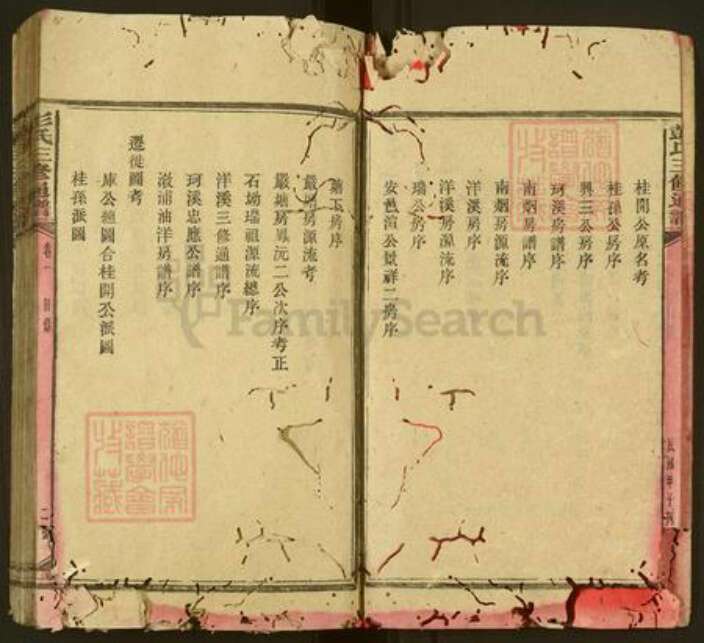 彭氏三修通譜
桂開公原名考
桂孫公房序
興三公房序
珂溪房譜序
南烟房譜序
南烟房源流序
洋溪房序
洋溪房源流序
瑞公房序
安邑渲公景祥二房序
玉房序
嚴塘房源流考
嚴塘房鳳沅二公次序考正
石坳瑞祖源流總序
洋溪三修通譜序
珂溪忠應公譜序
漵浦油洋房譜序
遷徙圖考
庫公總圖合桂開公派圖
桂孫派圖
彭氏三修通譜
卷一
目錄
二
FamilySearch